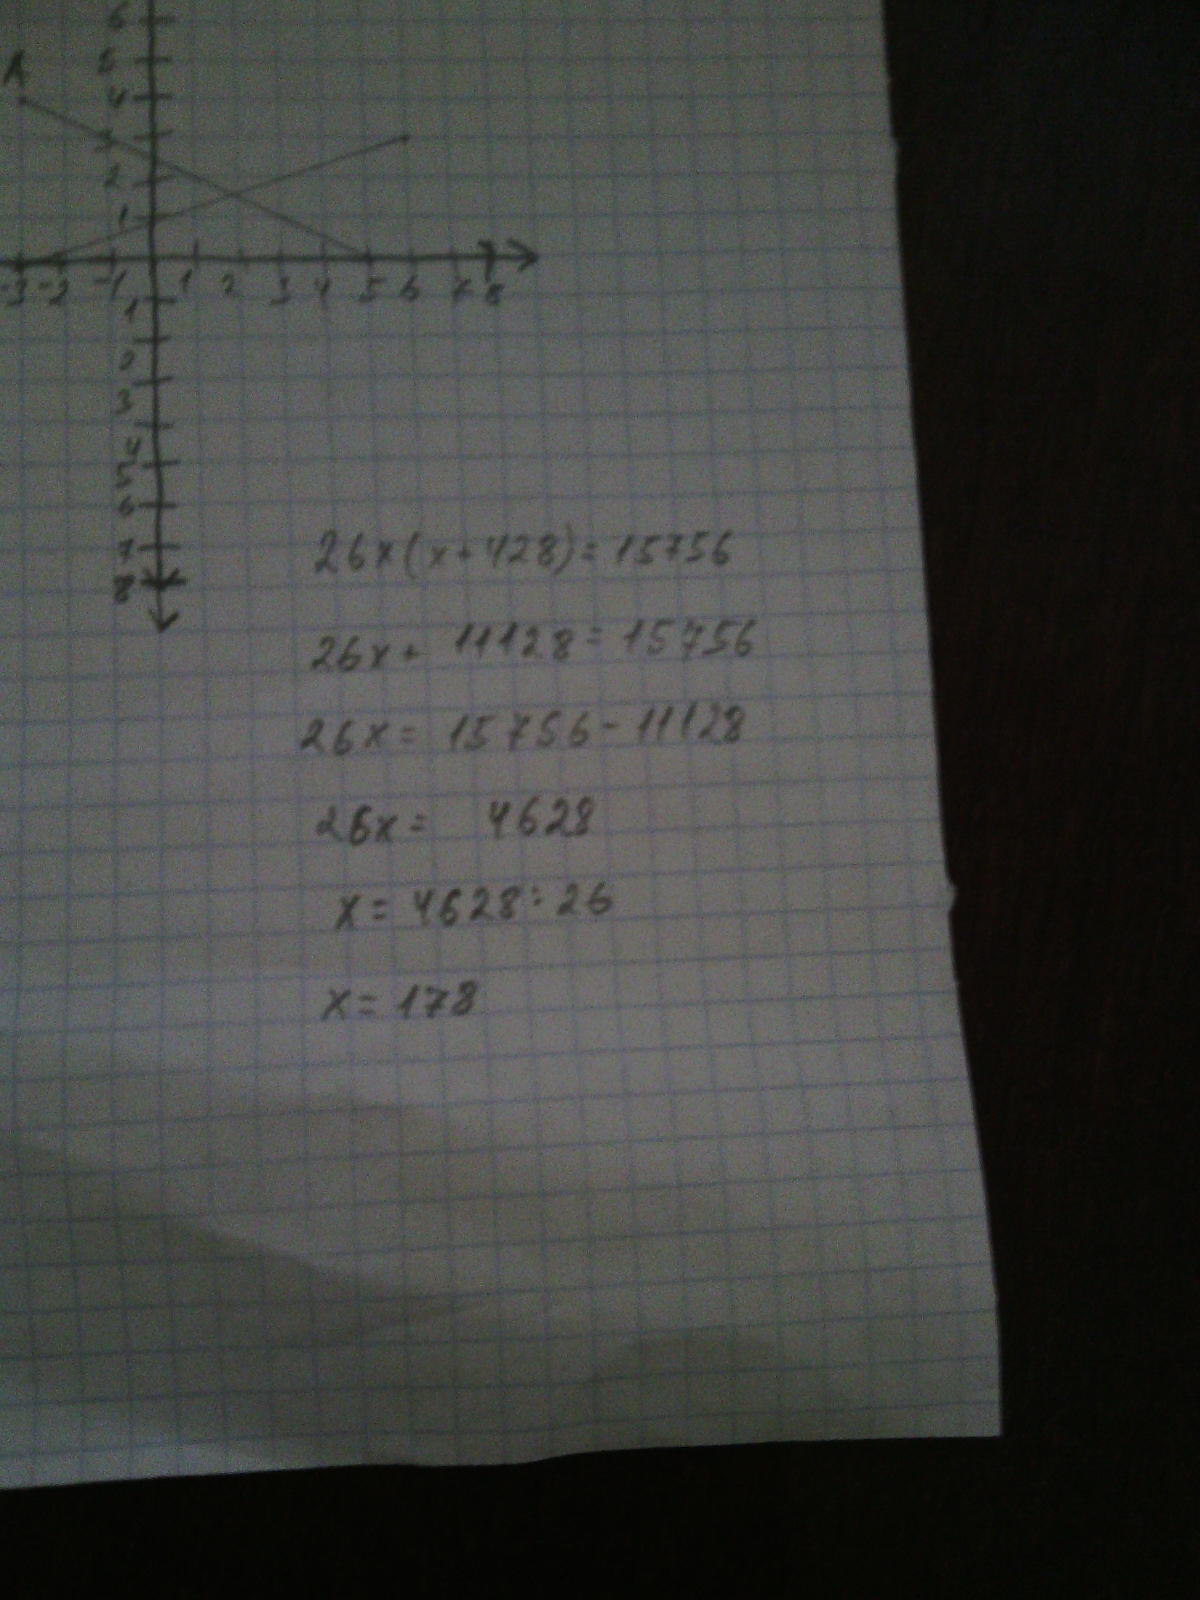 6
A
5
4
3
2
1
-3 -2 -1 1 2 3 4 5 6 7 8
1
2
3
4
5
6
7
8
26x(x+428)=15756
26x+ 11128=15756
26x= 15756-11128
26x= 4628
x= 4628:26
x= 178